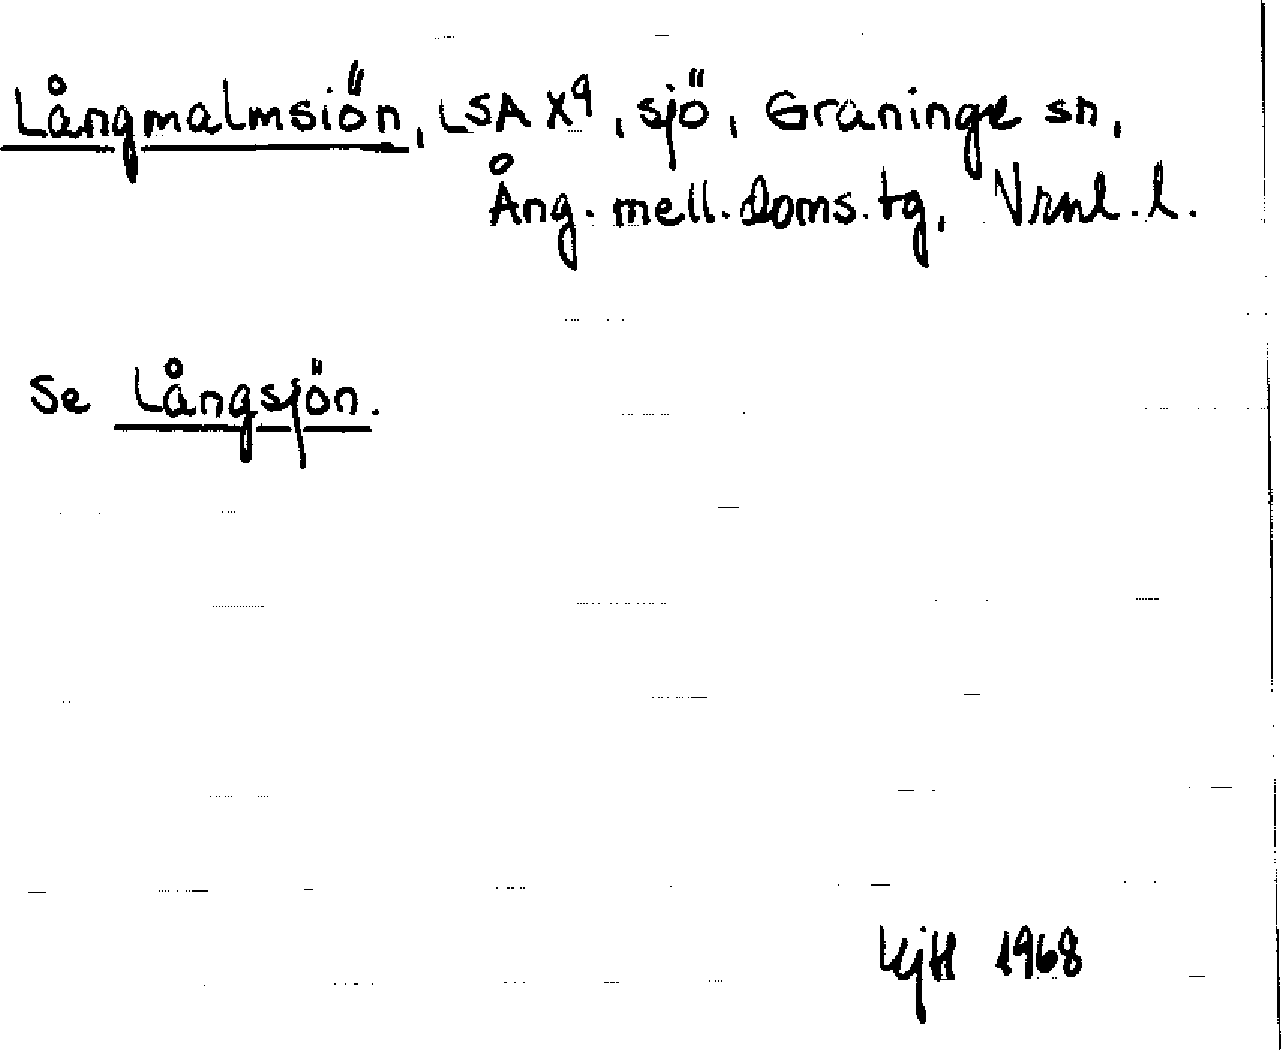 Långmalmsiön, LSA X9, sjö, Graninge sn,
Ång. mell. doms. tg, Vrnl. l.
Se Långsjön.
KjH 1968